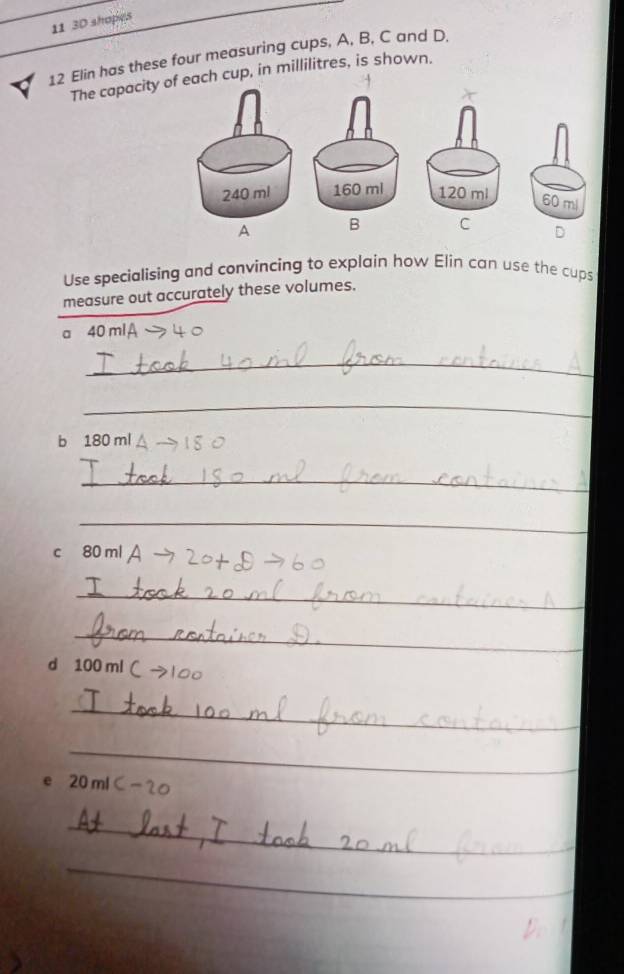 11 3D shapes
12 Elin has these four measuring cups, A, B, C and D.
The capacity of each cup, in millilitres, is shown.
240 ml 160 ml 120 ml 60 ml
A B C D
Use specialising and convincing to explain how Elin can use the cups
measure out accurately these volumes.
a 40 ml A → 40
I took 40 ml from container A
b 180 ml A → 180
I took 180 ml from container A
c 80 ml A → 20 + D → 60
I took 20 ml from container A
from container D.
d 100 ml C → 100
I took 100 ml from container
e 20 ml C - 20
At last, I took 20 ml from